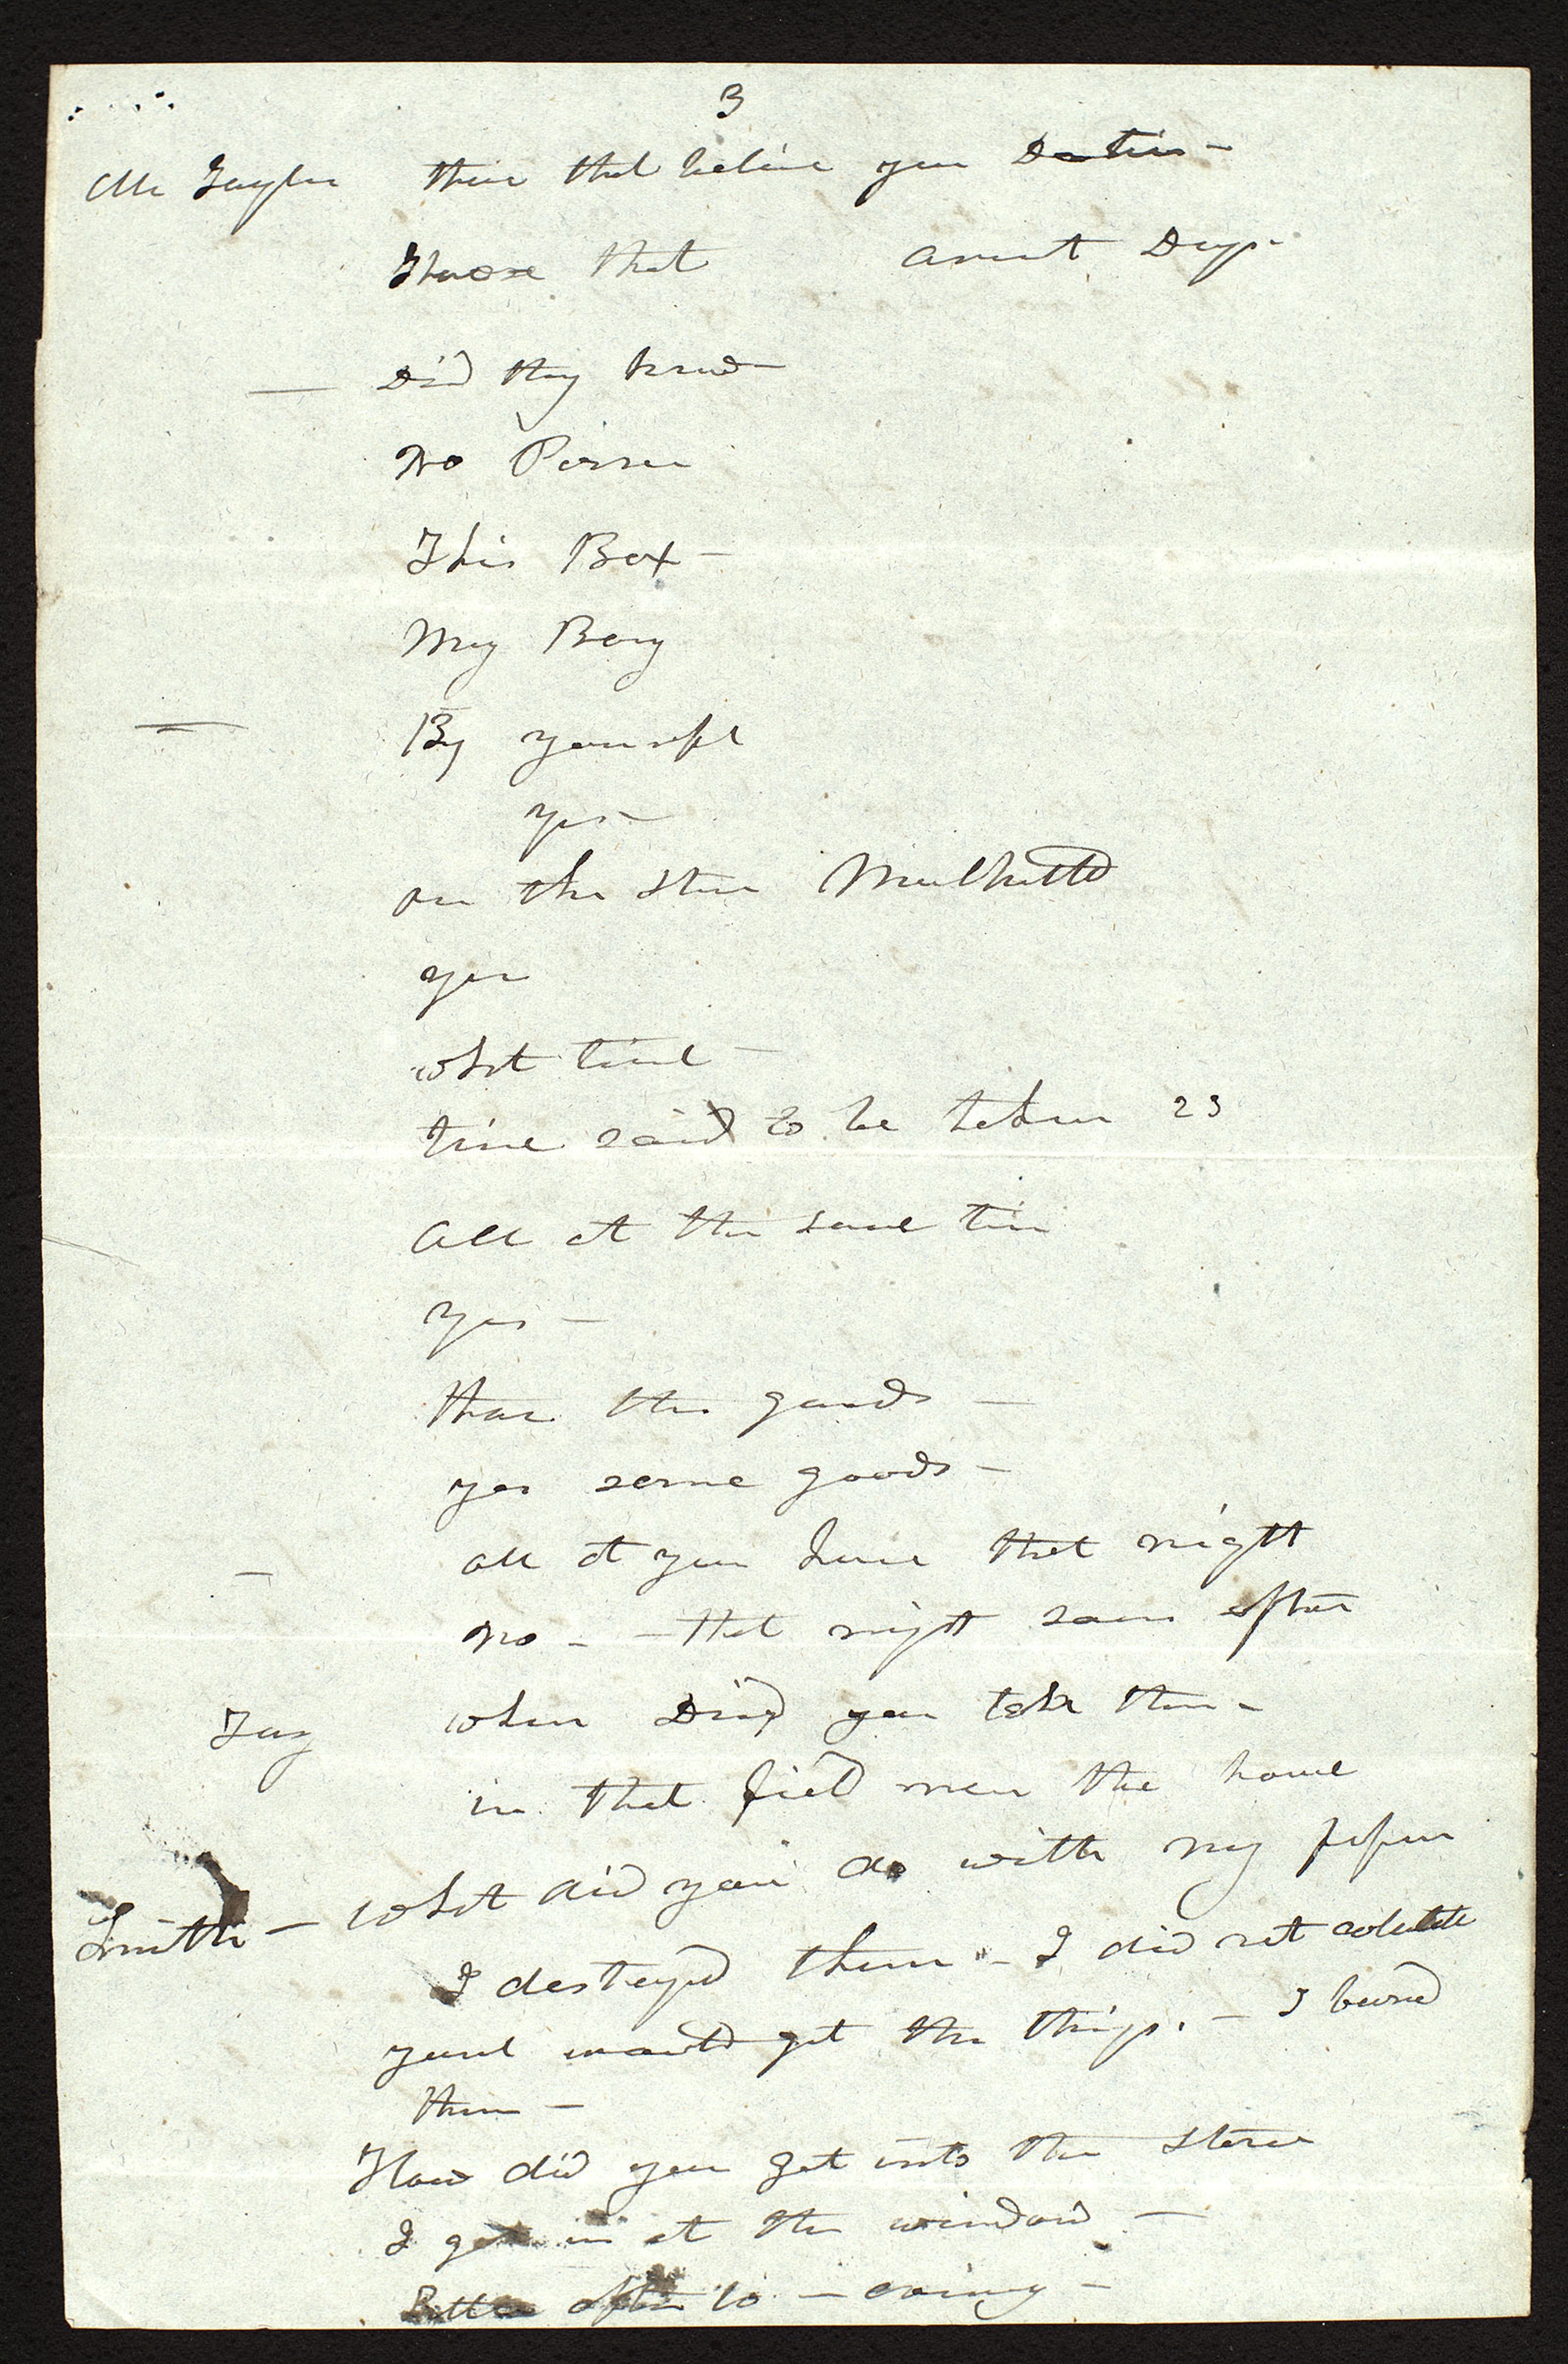 3
Mr Taylor then that believe you
Those that arent
Did they know
No Person
This Box -
My Boy
By yourself
yes -
on the
yes
what time -
time said to be taken 23
All at the same time
yes -
than the goods -
yes some goods -
all at your house that night
No - - that night soon after
Tay when Did you take them -
in that field near the house
Smith - what did you do with my papers
I destroyd them - I did not
youd get the things. - I burnd
them -
How did you get into the store
I got in at the window -
after 10 - evening -